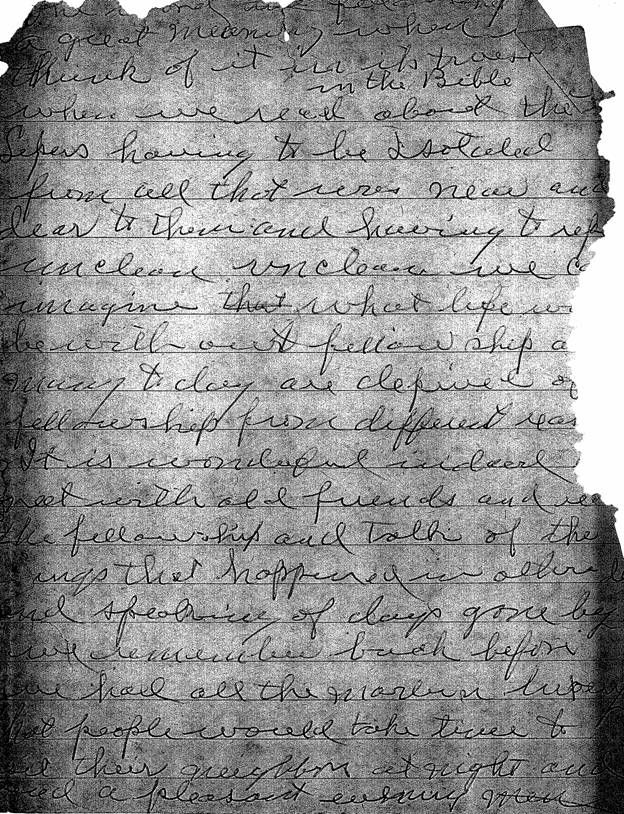 the word fellowship
a great meaning when
think of it in its
in the Bible
when we read about the
lepers having to be Isolated
from all that were near and
dear to them and having to
unclean unclean. we
imagine that what life
be with out fellow ship
many to day are depived of
fellowship from different
It is wonderful indeed
with old friends and
the fellowship and talk of the
ings that happened in
and speaking of days gone by
we remember back before
we had all the modern
hat people would take time to
their neighbor at night and
a pleasant evening